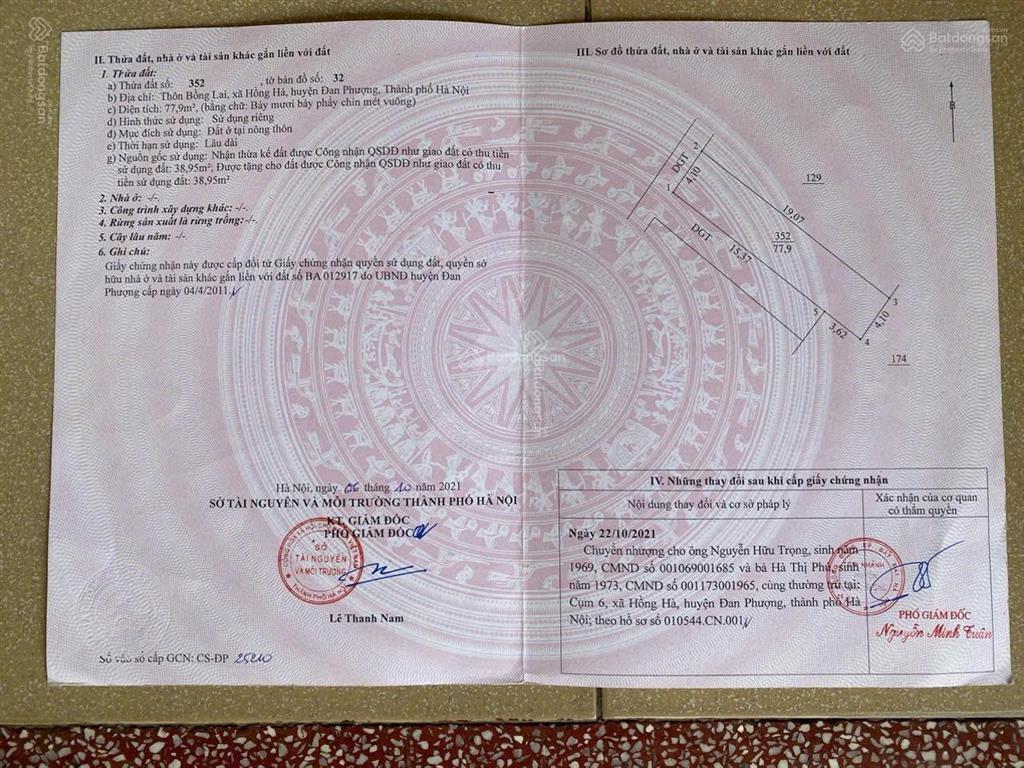 II. Thửa đất, nhà ở và tài sản khác gắn liền với đất
1. Thửa đất:
a) Thửa đất số: 352 , tờ bản đồ số: 32
b) Địa chỉ: Thôn Bồng Lai, xã Hồng Hà, huyện Đan Phượng, Thành phố Hà Nội
c) Diện tích: 77,9m², (bằng chữ: Bảy mươi bảy phẩy chín mét vuông)
d) Hình thức sử dụng: Sử dụng riêng
đ) Mục đích sử dụng: Đất ở tại nông thôn
e) Thời hạn sử dụng: Lâu dài
g) Nguồn gốc sử dụng: Nhận thừa kế đất được Công nhận QSDĐ như giao đất có thu tiền
sử dụng đất: 38,95m²; Được tặng cho đất được Công nhận QSDĐ như giao đất có thu
tiền sử dụng đất: 38,95m²
2. Nhà ở: -/-.
3. Công trình xây dựng khác: -/-.
4. Rừng sản xuất là rừng trồng: -/-.
5. Cây lâu năm: -/-
6. Ghi chú:
Giấy chứng nhận này được cấp đổi từ Giấy chứng nhận quyền sử dụng đất, quyền sở
hữu nhà ở và tài sản khác gắn liền với đất số BA 012917 do UBND huyện Đan
Phượng cấp ngày 04/4/2011.
Hà Nội, ngày 06 tháng 10 năm 2021
SỞ TÀI NGUYÊN VÀ MÔI TRƯỜNG THÀNH PHỐ HÀ NỘI
KT. GIÁM ĐỐC
PHÓ GIÁM ĐỐC
SỞ
TÀI NGUYÊN
VÀ MÔI TRƯỜNG
THÀNH PHỐ HÀ NỘI
Lê Thanh Nam
Số vào sổ cấp GCN: CS-ĐP 25210
III. Sơ đồ thửa đất, nhà ở và tài sản khác gắn liền với đất
B
2
DGT
4,10
1
129
19,07
352
77,9
DGT
15,37
3
5
4,10
3,62
4
174
IV. Những thay đổi sau khi cấp giấy chứng nhận
Nội dung thay đổi và cơ sở pháp lý
Xác nhận của cơ quan
có thẩm quyền
Ngày 22/10/2021
Chuyển nhượng cho ông Nguyễn Hữu Trọng, sinh năm
1969, CMND số 001069001685 và bà Hà Thị Phú, sinh
năm 1973, CMND số 001173001965, cùng thường trú tại:
Cụm 6, xã Hồng Hà, huyện Đan Phượng, thành phố Hà
Nội; theo hồ sơ số 010544.CN.001
PHÓ GIÁM ĐỐC
Nguyễn Minh Tuân
Batdongsan
Batdongsan
Batdongsan